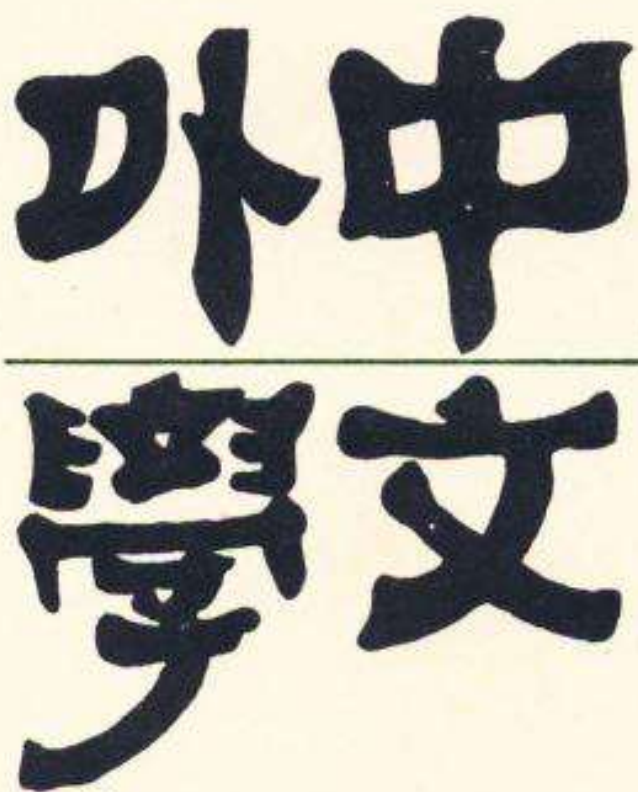 中外
文學